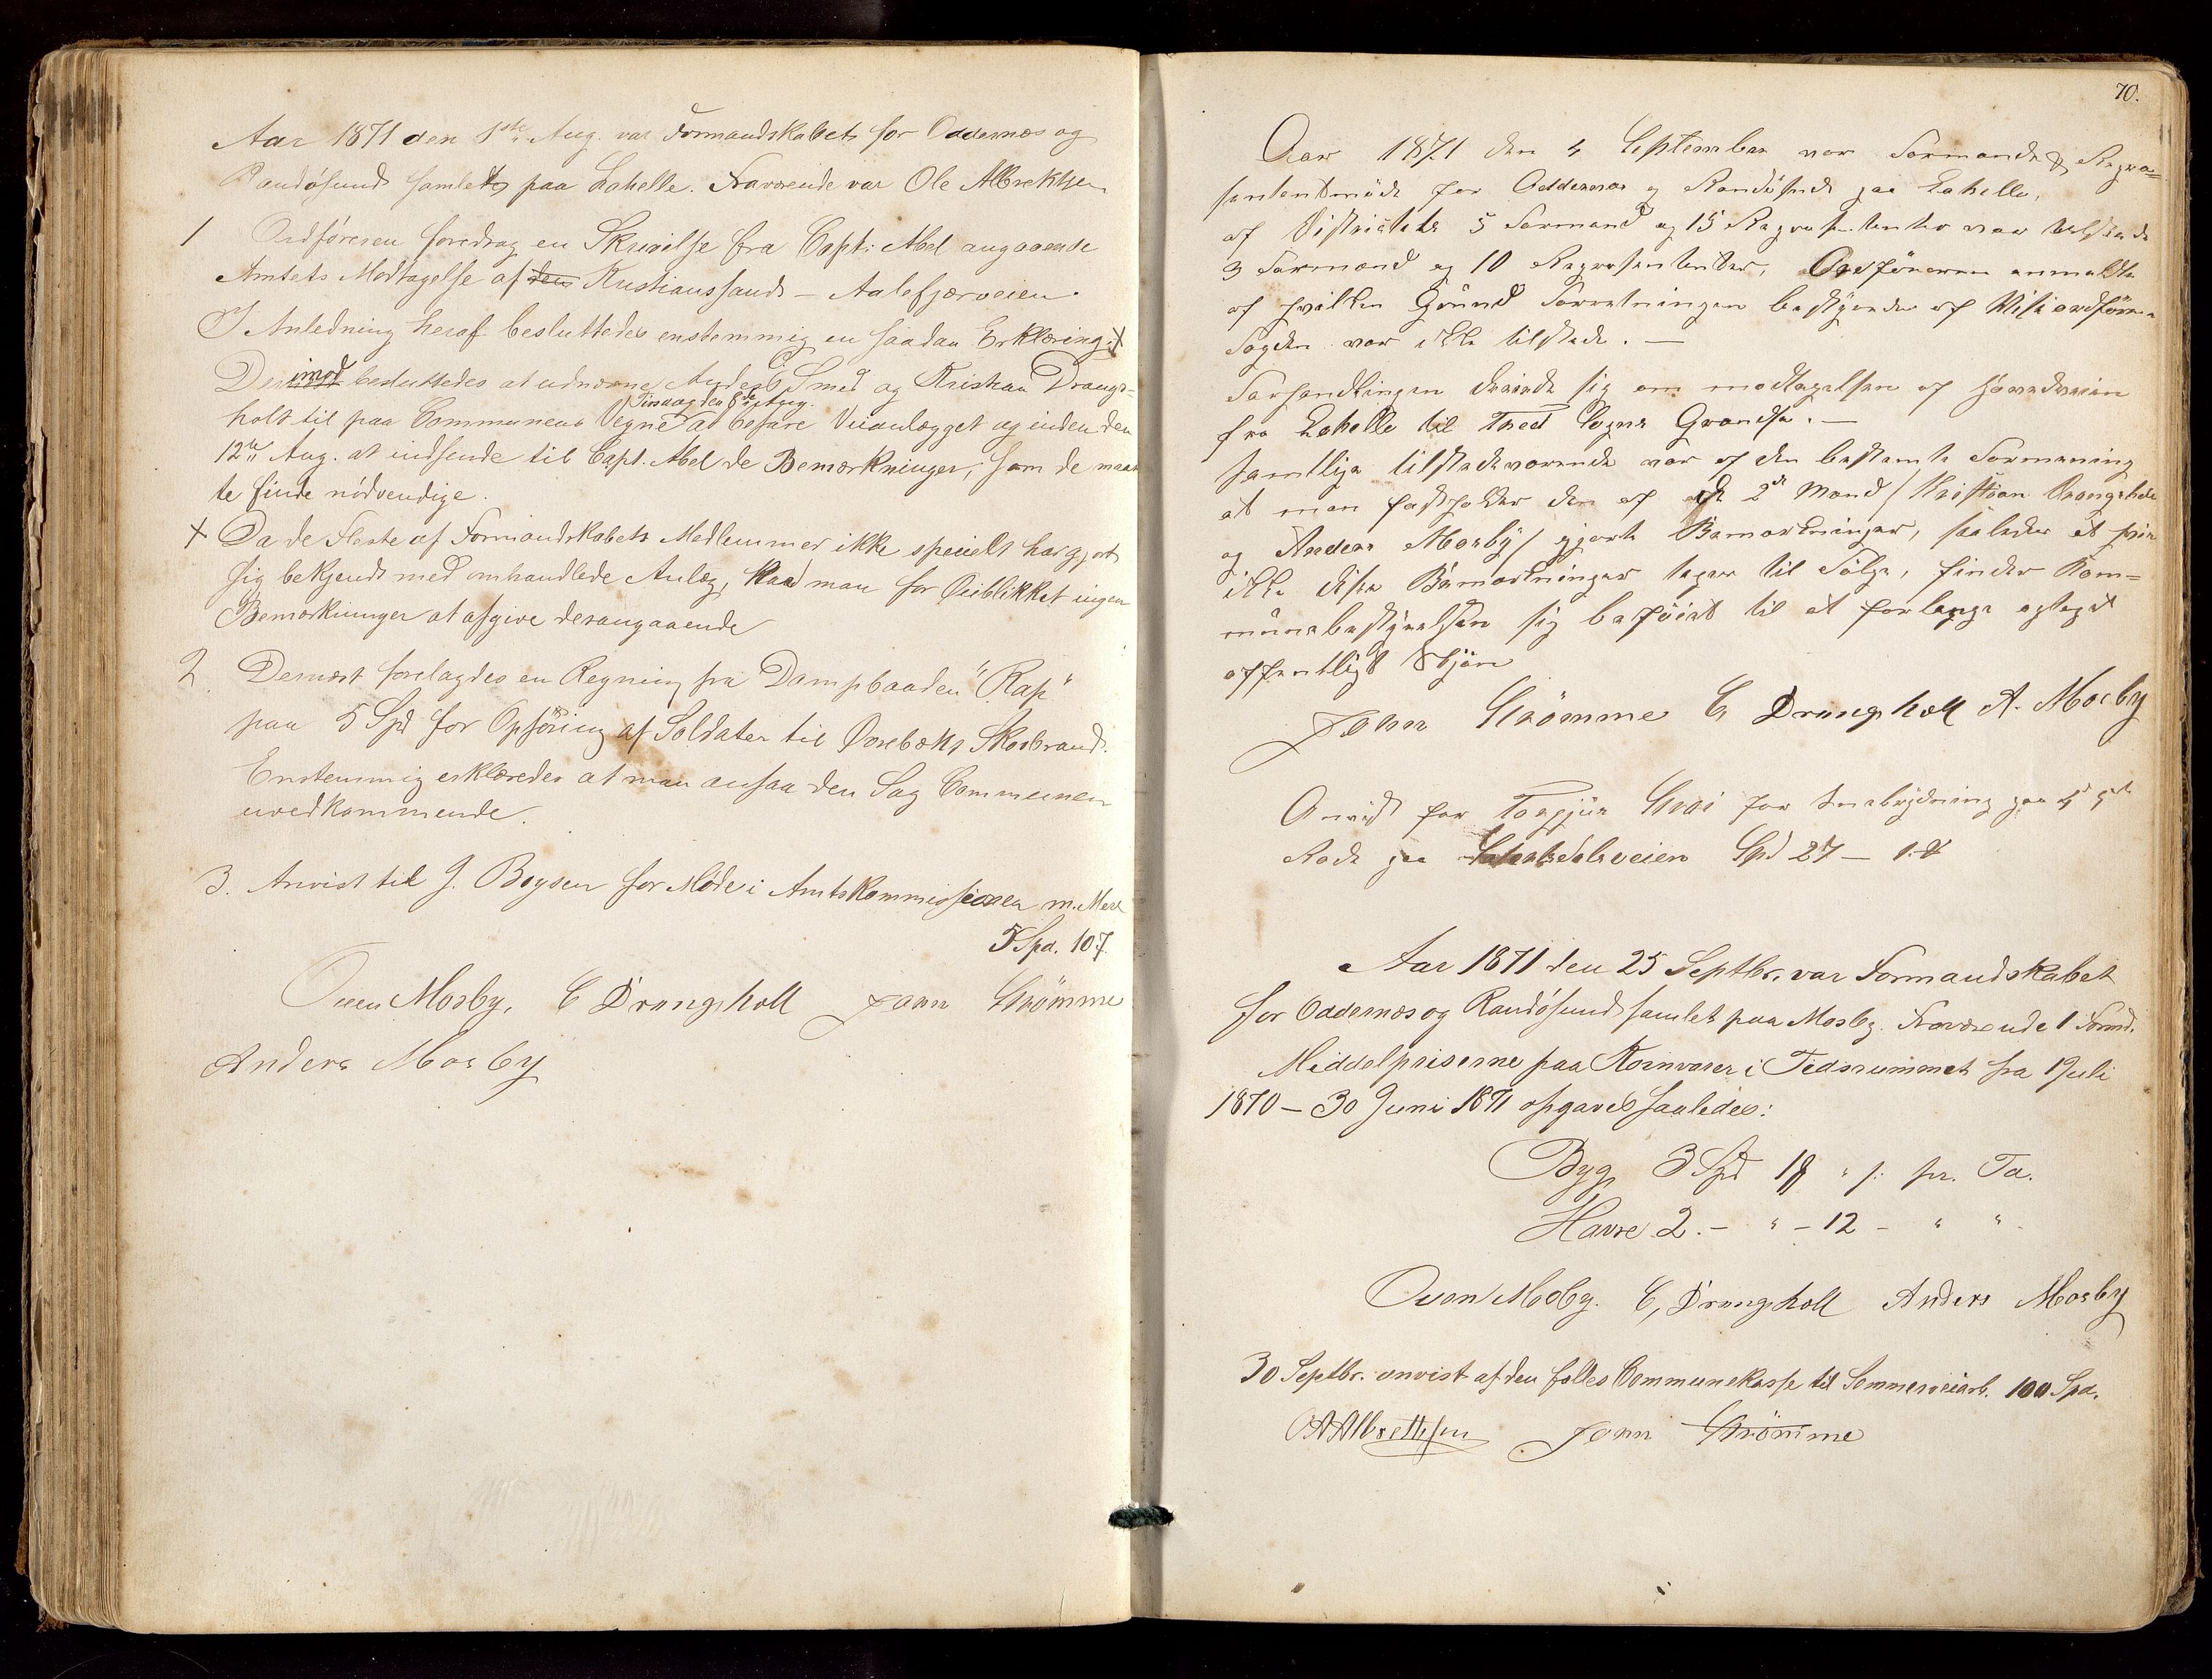 Aar 1871 den 1ste Aug. var Formandskabets for Oddernæs og
Randøsund samlet paa Lahelle. Fraværende var Ole Albrektsen
1 Ordføreren foredrag en Skrivelse fra Capt: Abel angaaende
Amtets Modtagelse af den Kristianssands - Aalefjærveien.
I Anledning heraf besluttedes enstemmig en saadan Erklæring: X
Derimod besluttedes at udnævne Anders Smed og Kristian Drangs-
Tirsdag den 8de Aug.
holt til paa Communens Vegne at befare Veianlægget og inden den
12te Aug. at indsende til Capt. Abel de Bemærkninger, som de maat
te finde nödvendige.
X Da de Fleste af Formandskabets Medlemmer ikke specielt har gjort
sig bekjendt med omhandlede Anlæg, kand man for Øieblikket ingen
Bemærkninger at afgive desangaaende
2. Dernæst forelagdes en Regning fra Dampbaaden "Rap"
paa 5 Spd for Opføring af Soldater til Dovebæks Skovbrand.
Enstemmig erklæredes at man ansaa den Sag Communen
uvedkommende.
3. Anvist til J. Boysen for Møde i Amtskommissionen m. Mere
5 Spd. 107.
Owen Mosby, C Drangsholt John Strömme
Anders Mosby
70.
Aar 1871 den 4 September var Formands & Repræ=
sentantmöde for Oddernæs og Randösund paa Lahelle,
af Distriktets 5 Formænd og 15 Repræsentanter var tilstede
3 Formænd og 10 Repræsentanter, Ordföreren anmeldte
af hvilken Grund Forretningen bestyredes af Viseordförer
Fogden var ikke tilstede. —
Forhandlingen dreiede sig om modtagelsen af hovedveien
fra Lahelle til Tved Sogns Grændse. —
Samtlige tilstedeværende var af den bestemte Formening
at man fastholder den af de 2de Mænd / Kristian Drangsholt
og Anders Mosby / gjorte Bemærkninger, saaledes at hvis
ikke disse Bemærkninger tages til Fölge, finder Kom=
munebestyrelsen sig beföiet til at forlange optaget
offentligt Skjön
John Strömme C, Drangsholt A. Mosby
Anvist for Torgjus for Snebrydning paa 4de 5te
Rode paa Spd 27 —
Aar 1871 den 25 Septbr. var Formandskabet
for Oddernæs og Randøsund samlet paa Mosby. Fraværende 1 Formd.
Middelpriserne paa Kornvarer i Tidsrummet fra 1 Juli
1870 - 30 Juni 1871 opgaves saaledes:
Byg 3 Spd 18 " s: pr. Tø.
Havre 2. - " - 12 - " "
Owen Mosby. C, Drangsholt Anders Mosby
30 Septbr. anvist af den fælles Communekasse til Sommerveiarb. 100 Spd.
OAAlbrettsen John Strömme